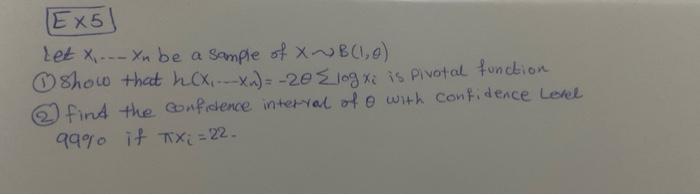 EX5
Let X1, --- Xn be a sample of X~B(1,θ)
① Show that h(X1 --- Xn) = -2θ Σ log xi is pivotal function
② find the confidence interval of θ with confidence Level
99% if πxi = 22.